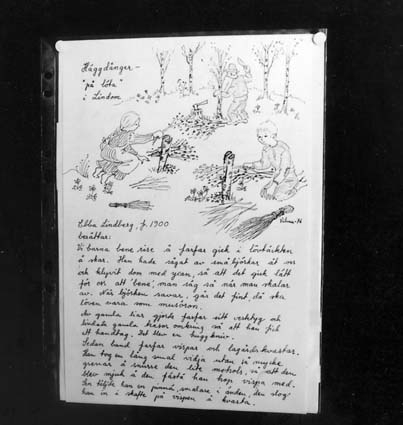 Häggdånger -
"på löta"
i Lindom
Vilma -76
Ebba Lindberg, f. 1900
berättar:
Vi barna bene rise å farfar gick i lövtäckten
å skar. Han hade sågat av små björkar åt oss
och klyvit dom med yxan, så att det gick lätt
för oss att 'bene', man såg så när man skalar
av. När björken savar, går det fint, då ska
löven vara som musöron.
Av gamla liar gjorde farfar sitt verktyg och
lindade gamla trasor omkring så att han fick
ett handtag. Det blev en huggkniv.
Sedan band farfar vispar och lagårdskvastar.
Han tog en lång smal vidja utan så mycke
grenar å snurre den lite motsols, så att den
blev mjuk å den fästa han hop vispa med.
Sen täljte han en pinnå, smalare i änden, den slog
han in i skafte på vispen å kvasta.